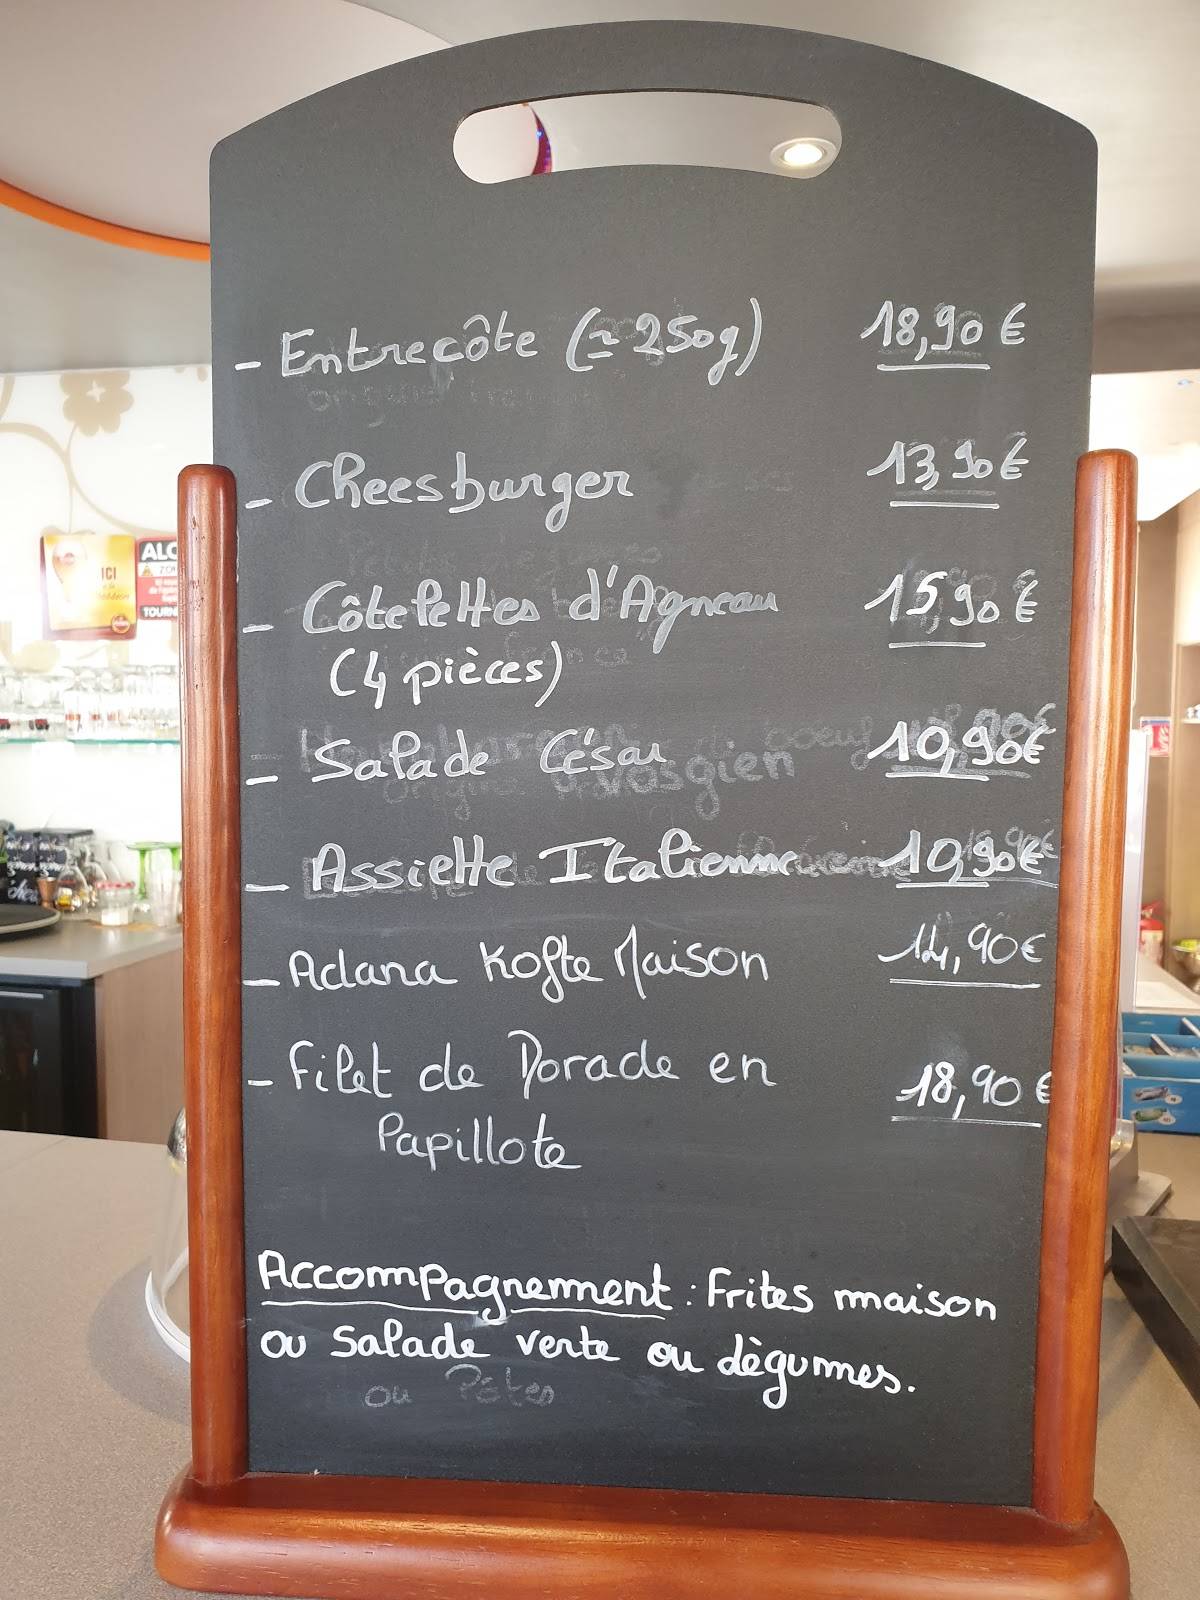 - Entrecôte (~ 250g) 18,90 €
- Cheesburger 13,90 €
- Côtelettes d'Agneau 15,90 €
(4 pièces)
- Salade César 10,90€
vosgien
- Assiette Italienne 10,90€
- Adana Kofte Maison 14,90€
- Filet de Dorade en 18,90 €
Papillote
Accompagnement : Frites maison
ou Salade verte ou lègumes.
ou Pâtes
ICI
ALC
TOURN